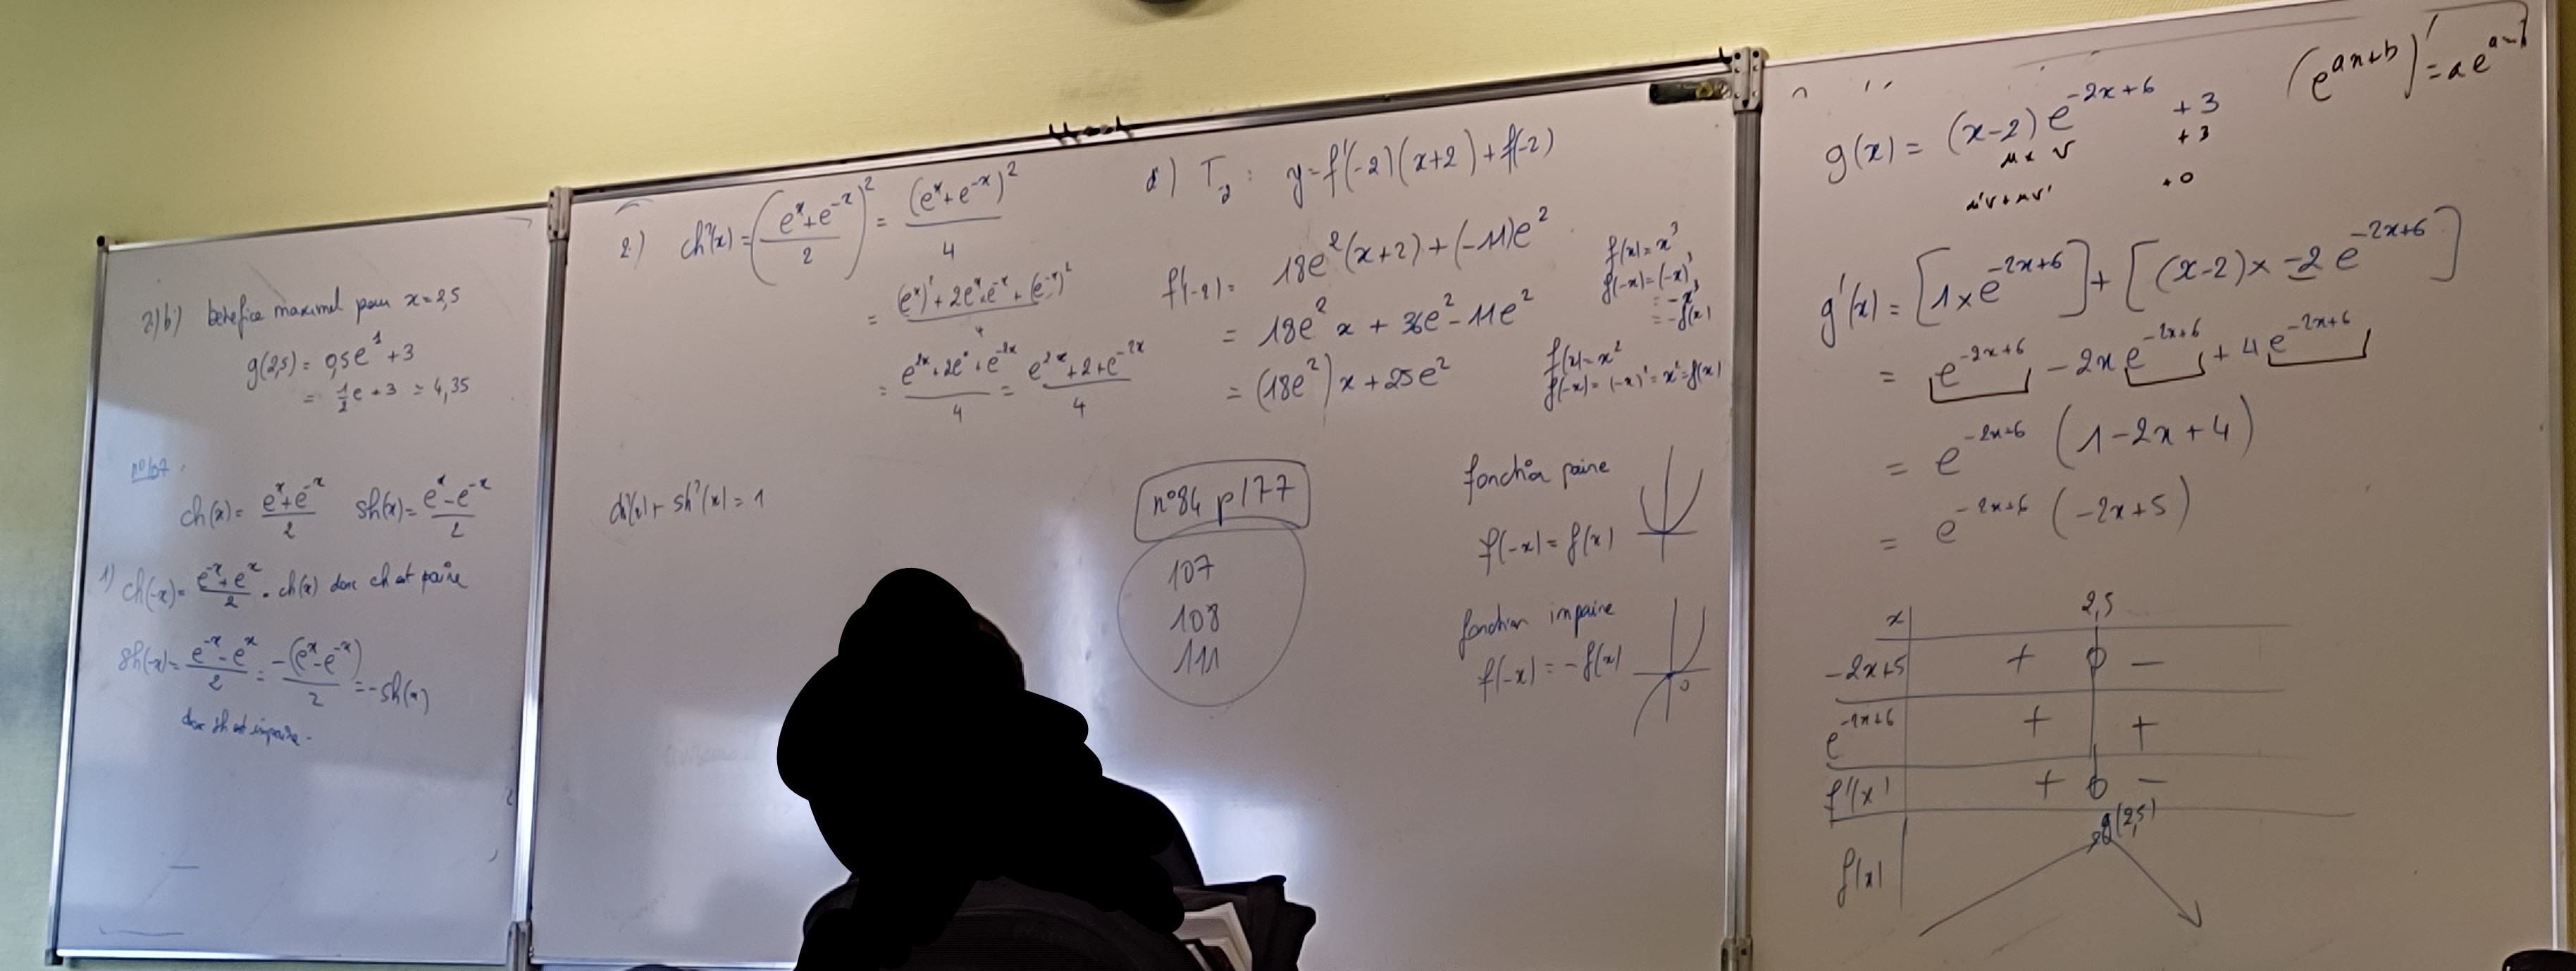 2) b) bénéfice maximal pour x = 2,5
g(2,5) = 0,5e¹ + 3
= 1/2 e + 3 = 4,35
n°107
ch(x) = (eˣ + e⁻ˣ)/2 sh(x) = (eˣ - e⁻ˣ)/2
1) ch(-x) = (e⁻ˣ + eˣ)/2 = ch(x) donc ch est paire
sh(-x) = (e⁻ˣ - eˣ)/2 = -(eˣ - e⁻ˣ)/2 = -sh(x)
donc sh est impaire.
2) ch²(x) = ((eˣ + e⁻ˣ)/2)² = (eˣ + e⁻ˣ)²/4
= ((eˣ)² + 2eˣ×e⁻ˣ + (e⁻ˣ)²)/4
= (e²ˣ + 2e⁰ + e⁻²ˣ)/4 = (e²ˣ + 2 + e⁻²ˣ)/4
ch²(x) + sh²(x) = 1
d) T₋₂ : y = f'(-2)(x+2) + f(-2)
f'(-2) = 18e²(x+2) + (-11)e²
= 18e²x + 36e² - 11e²
= (18e²)x + 25e²
f(x) = x³
f(-x) = (-x)³
= -x³
= -f(x)
f(x) = x²
f(-x) = (-x)² = x² = f(x)
n°84 p177
107
108
111
fonction paire
f(-x) = f(x)
fonction impaire
f(-x) = -f(x)
0
(e^(ax+b))' = a e^
g(x) = (x-2)e^(-2x+6) + 3
u × v + 3
u'v + uv' + 0
g'(x) = [1×e^(-2x+6)] + [(x-2)× -2e^(-2x+6)]
= e^(-2x+6) - 2x e^(-2x+6) + 4 e^(-2x+6)
= e^(-2x+6) (1-2x+4)
= e^(-2x+6) (-2x+5)
x 2,5
-2x+5 + 0 -
e^(-2x+6) + +
f'(x) + 0 -
g(2,5)
f(x)